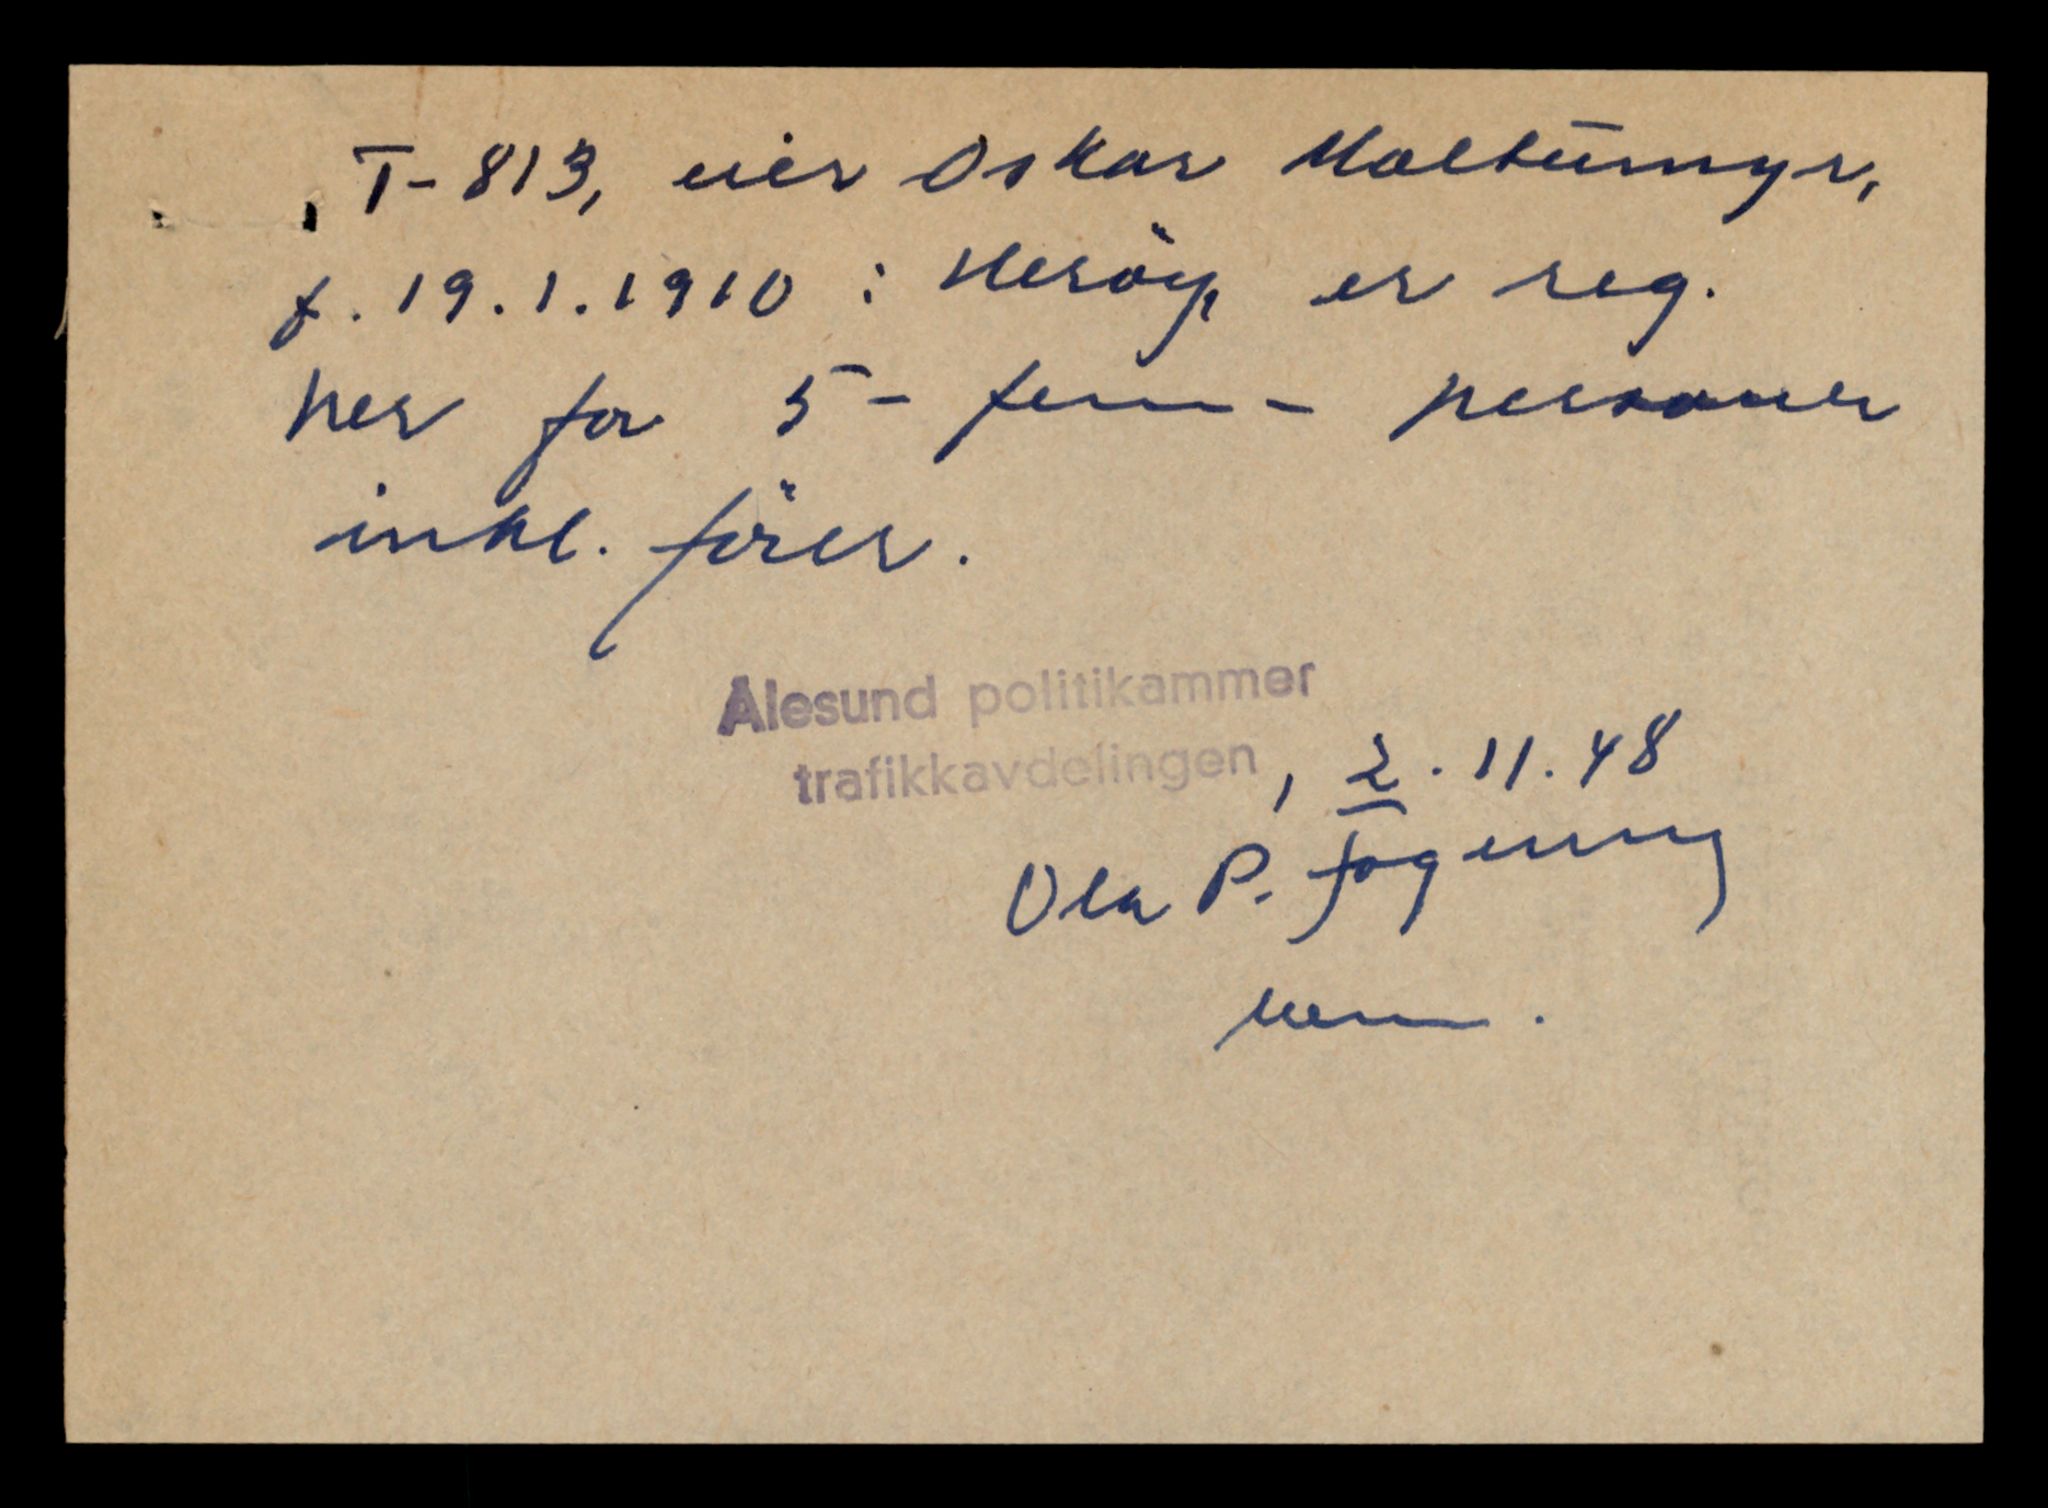 T-813, eier Oskar Moltumyr,
f. 19.1.1910 i Herøy, er reg.
her for 5- fem - personer
inkl. fører.
Ålesund politikammer
trafikkavdelingen, 2.11.48
Ola P.